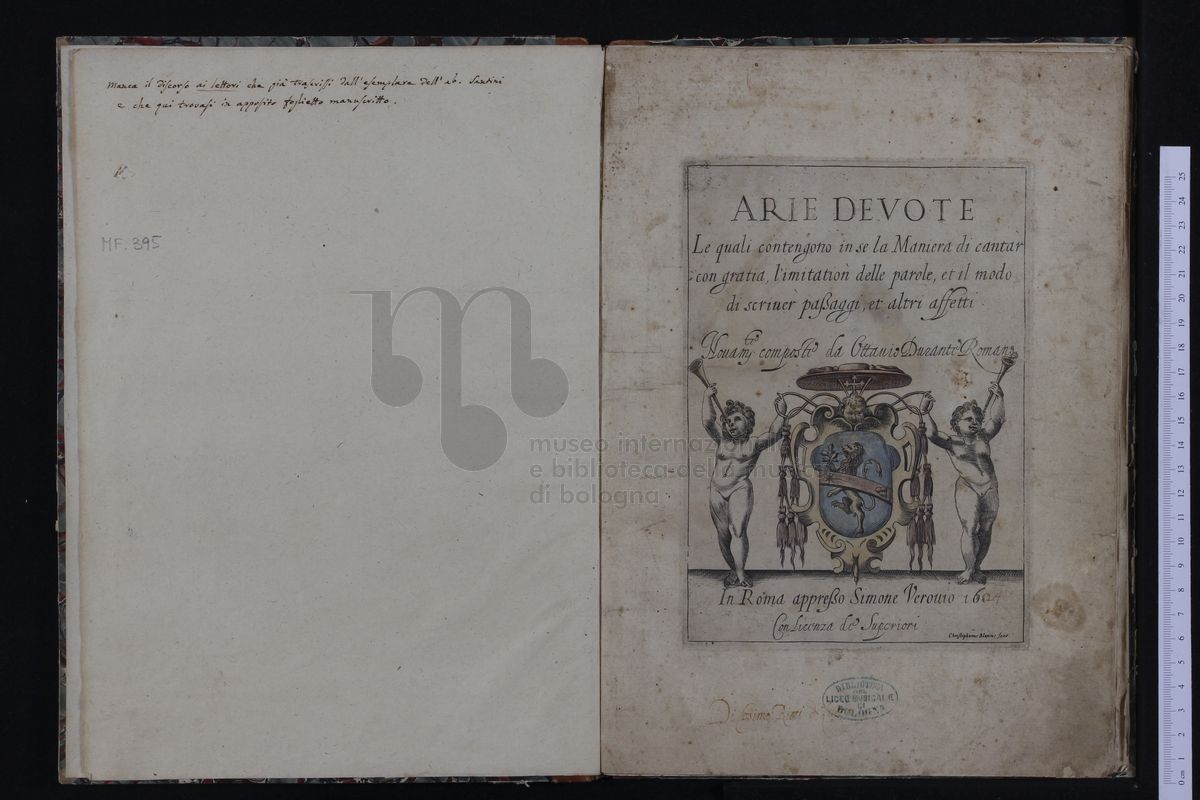 Manca il discorso ai lettori che già trascrissi dall'esemplare dell'ab. Santini
e che qui trovasi in apposito foglietto manuscritto.
MF. 395
museo internazi
e biblioteca della mus
di bologna
ARIE DEVOTE
Le quali contengono in se la Maniera di cantar
con gratia, l'imitation delle parole, et il modo
di scriuer paßaggi, et altri affetti
Nouam.te composte da Ottauio Durante Romano
In Roma appreßo Simone Verouio 160
Con licenza de Superiori
Christophorus Blancus
BIBLIOTECA
DEL
LICEO MUSICALE
DI
BOLOGNA
Di
25 24 23 22 21 20 19 18 17 16 15 14 13 12 11 10 9 8 7 6 5 4 3 2 1 0 cm